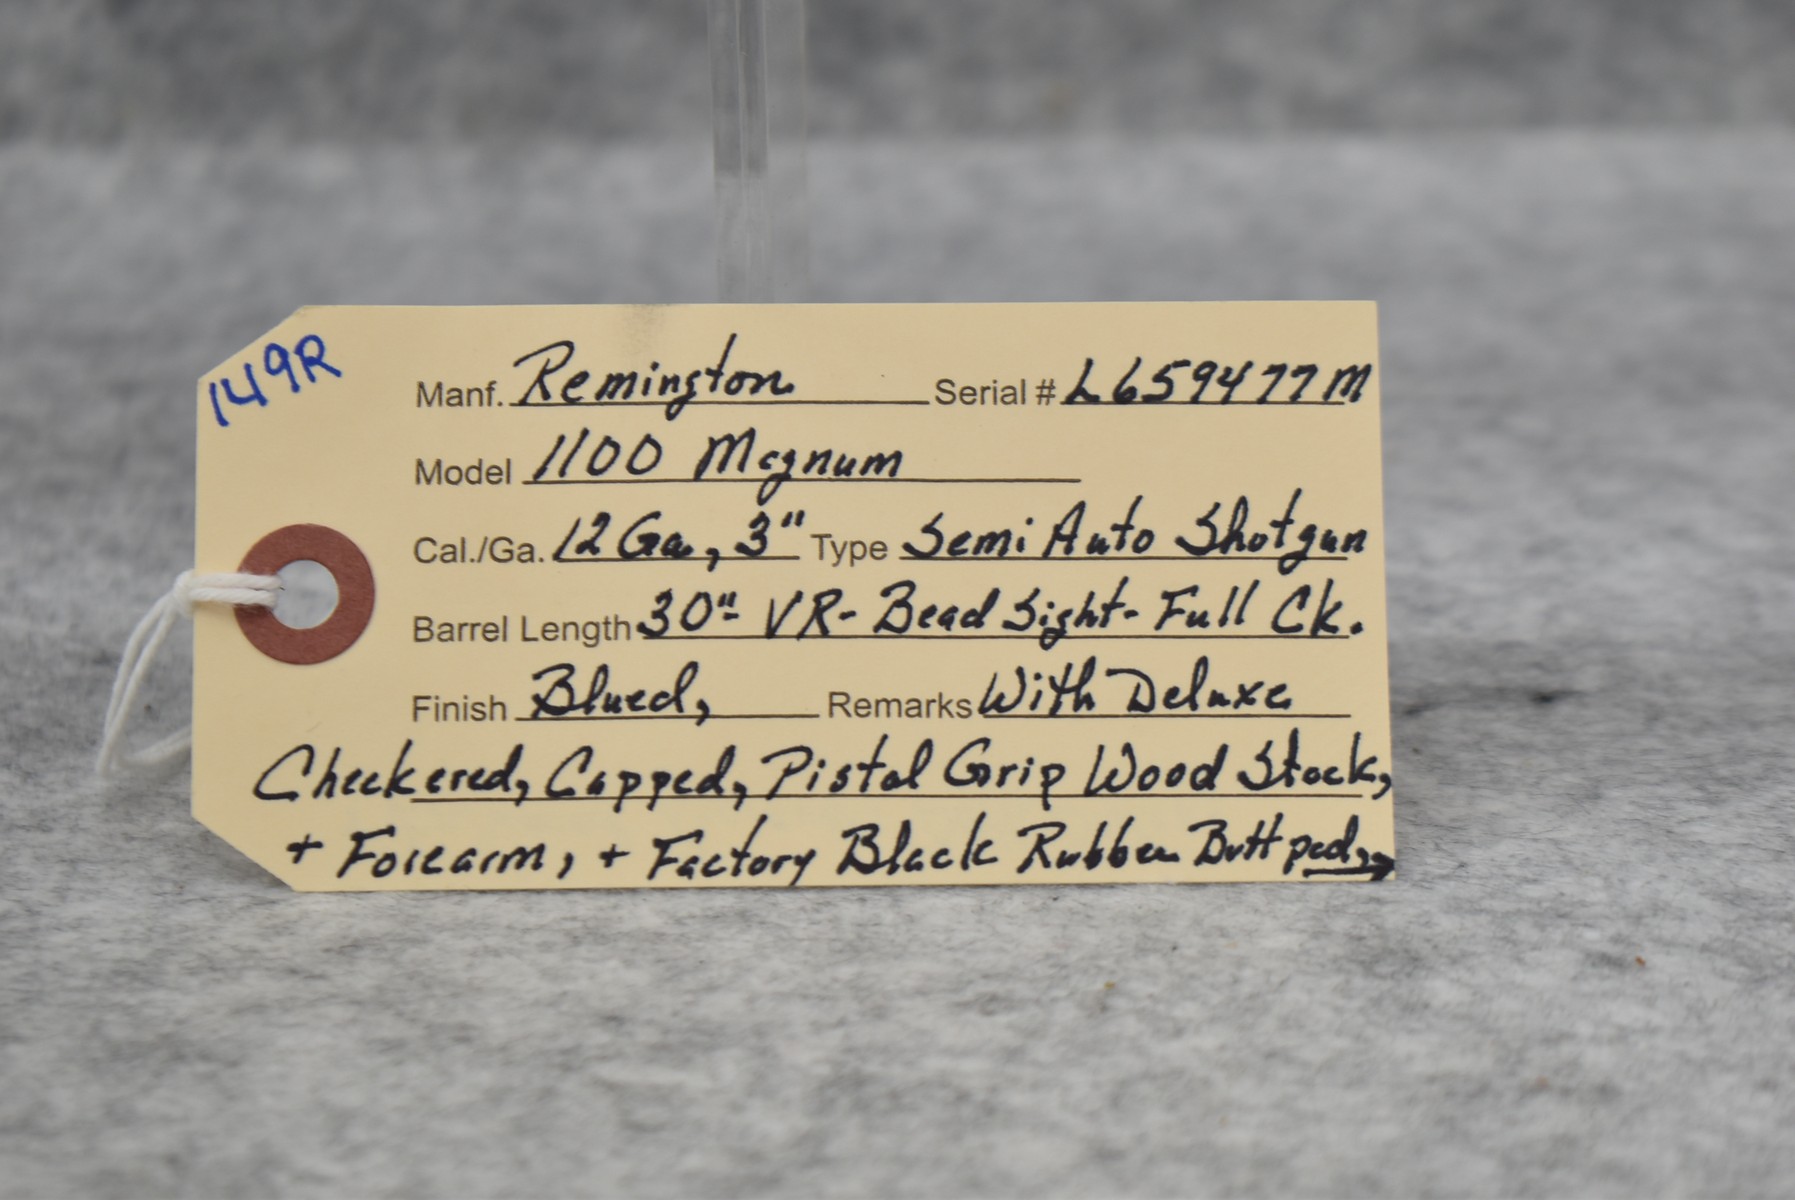 149R
Manf. Remington Serial # L659477M
Model 1100 Magnum
Cal./Ga. 12 Ga, 3" Type Semi Auto Shotgun
Barrel Length 30"- VR- Bead Sight- Full Ck.
Finish Blued, Remarks With Deluxe
Checkered, Capped, Pistol Grip Wood Stock,
+ Forearm, + Factory Black Rubber Butt pad,